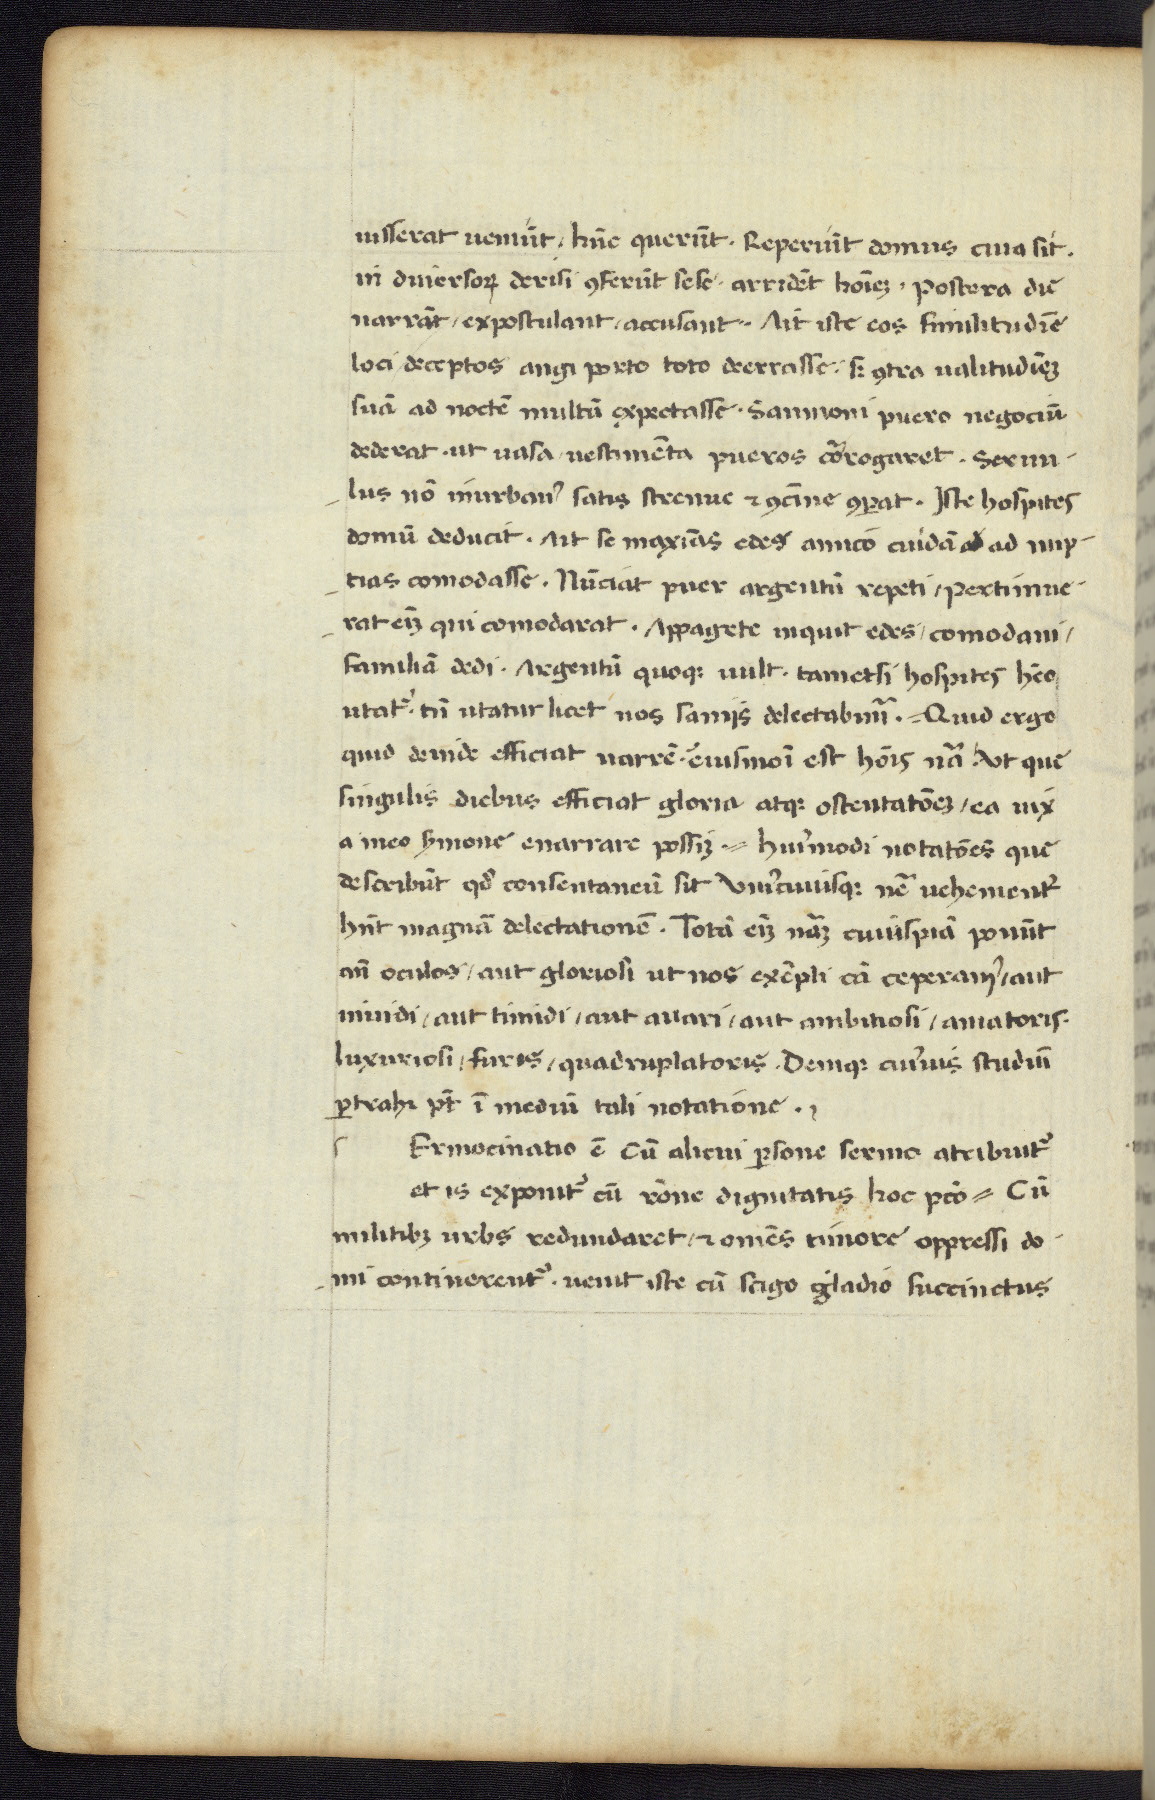 uisserat ueniũt / hũc querũt . Reperiũt domus cuia sit .
in diuersoꝝ derisi ꝯferũt sese . arridẽt hoĩeꝫ . Postera die
narrãt / expostulant / accusant . Ait iste eos similitudĩe
loci deceptos angi porto toto deerrasse . sꝫ ꝯtra ualitudĩeꝫ
suã ad noctẽ multũ expectasse . Sannioni puero negociũ
dederat . ut uasa / uestimẽta pueros cõrogaret . Seruu-
lus nõ inurbanꝰ satis strenue ⁊ ꝯcĩne ꝯꝑat . Iste hospites
domũ deducit . Ait se maxĩas edes amico cuidã ad ad nup-
tias comodasse . Nũciat puer argentũ repeti / Pertimue-
rat eĩꝫ qui comodarat . Appagete inquit edes / comodaui /
familiã dedi . Argentũ quoqꝫ uult . tametsi hospites hẽo
utatᷣ . tñ utatur licet nos samijs delectabimᷣ . = Quid ergo
quid deinde efficiat narrẽ . eiusmõi est hõis nã . Vt que
singulis diebus efficiat gloria atqꝫ ostentatõeꝫ / ea uix
a̅nuo s̃mone enarrare possiꝫ . = huiꝰmodi notatões que
describũt qđ consentaneũ sit Vniꝰcuiusqꝫ nẽ uehementᷣ
hñt magnã delectationẽ . Totã eĩꝫ nãꝫ cuiuspiã ponũt
añ oculos / aut gloriosi ut nos exẽpli cã ceperamꝰ / aut
inuidi / aut timidi / aut auari / aut ambitiosi / amatoris .
luxuriosi / furis / quadruplatoris . Deniqꝫ cuiꝰuis studiũ
ꝓtrahi pt̃ ĩ mediũ tali notatione .
Ermocinatio ẽ Cũ alicui ꝑsone sermo atribuitᷣ
et is exponitᷣ cũ rõne dignitatis hoc pctõ = Cũ
militibꝫ urbs redundaret / ⁊ omẽs timore oppressi do-
mi continerentᷣ . uenit iste cũ scigo gladio succinctus